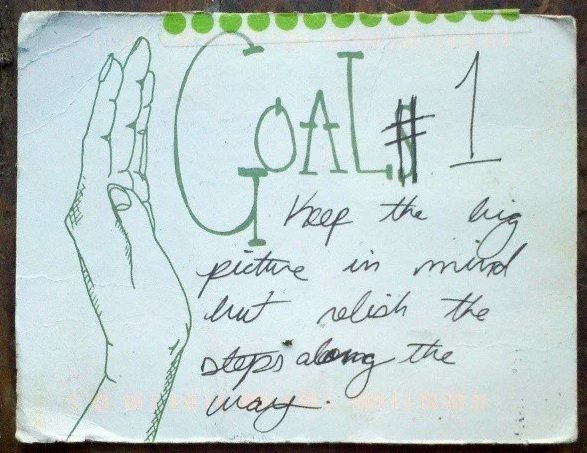 GOALS #1
Keep the big
picture in mind
but relish the
steps along the
way.